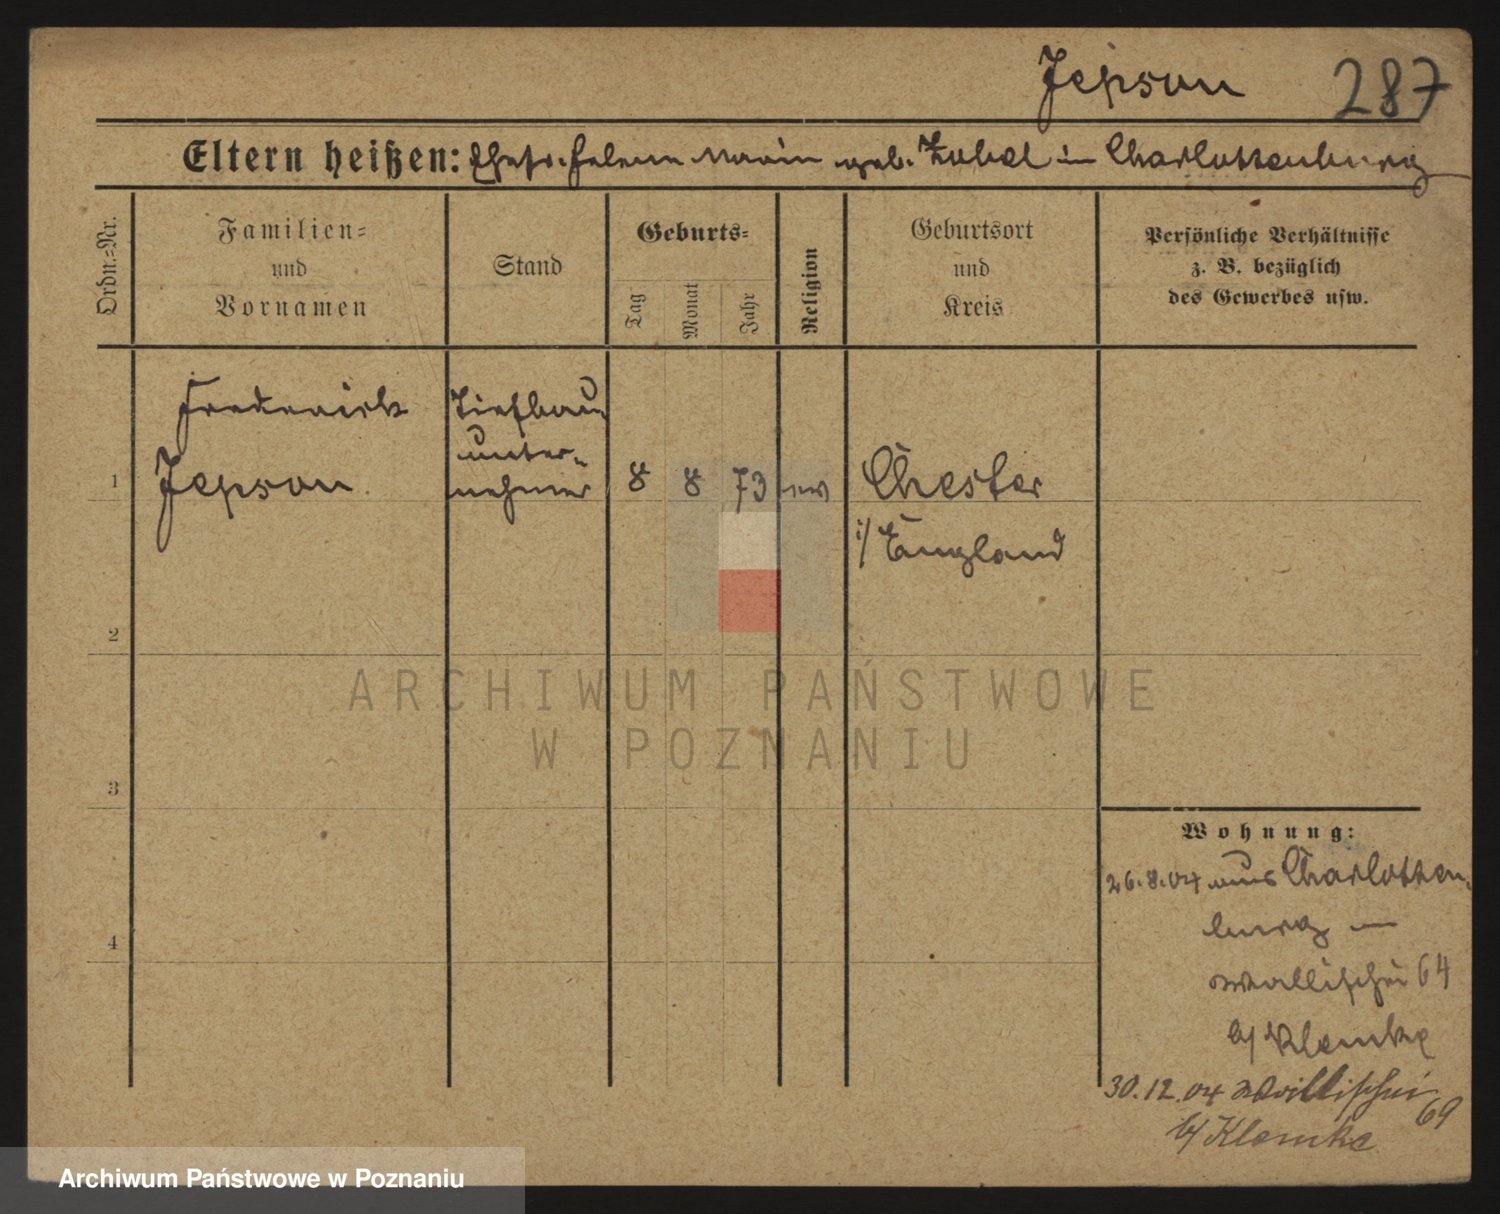 Jepson 287
Eltern heißen: Ehefr. Helene Marie geb. Zobel in Charlottenburg
Ordn.-Nr.
Familien-
und
Vornamen
Stand
Geburts-
Tag
Monat
Jahr
Religion
Geburtsort
und
Kreis
Persönliche Verhältnisse
z. B. bezüglich
des Gewerbes usw.
Frederick
Jepson
Tiefbau
unter-
nehmer
1
8 8 73 ev
Chester
i/ England
2
ARCHIWUM PAŃSTWOWE
W POZNANIU
3
Wohnung:
26.8.04 aus Charlotten-
burg —
Wallischei 64
b/ Klemke
4
30.12.04 Wallischei
69
b/ Klemke
Archiwum Państwowe w Poznaniu